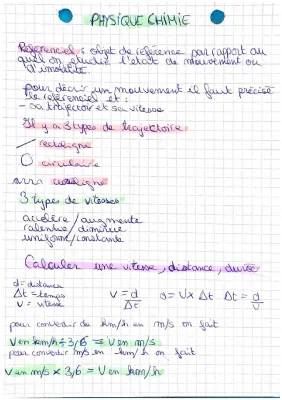 PHYSIQUE CHIMIE
Referenciel : objet de reference par rapport au
quel on etudie l'etat de mouvement ou
d'imobilité.
pour décrir un mouvement il faut précisé
le référenciel et :
- sa trajectoir et sa vitesse
Il y a 3 types de trajectoire
rectiligne
circulaire
curviligne
3 types de vitesses
accélère / augmente
ralentie / diminue
uniforme / constante
Calculer une vitesse, distance, durée
d = distance
Δt = temps
v = vitesse
v = d/Δt d = v x Δt Δt = d/v
pour convertir de km/h en m/s on fait
V en km/h ÷ 3,6 = V en m/s
pour convertir m/s en km/h on fait
V en m/s x 3,6 = V en km/h